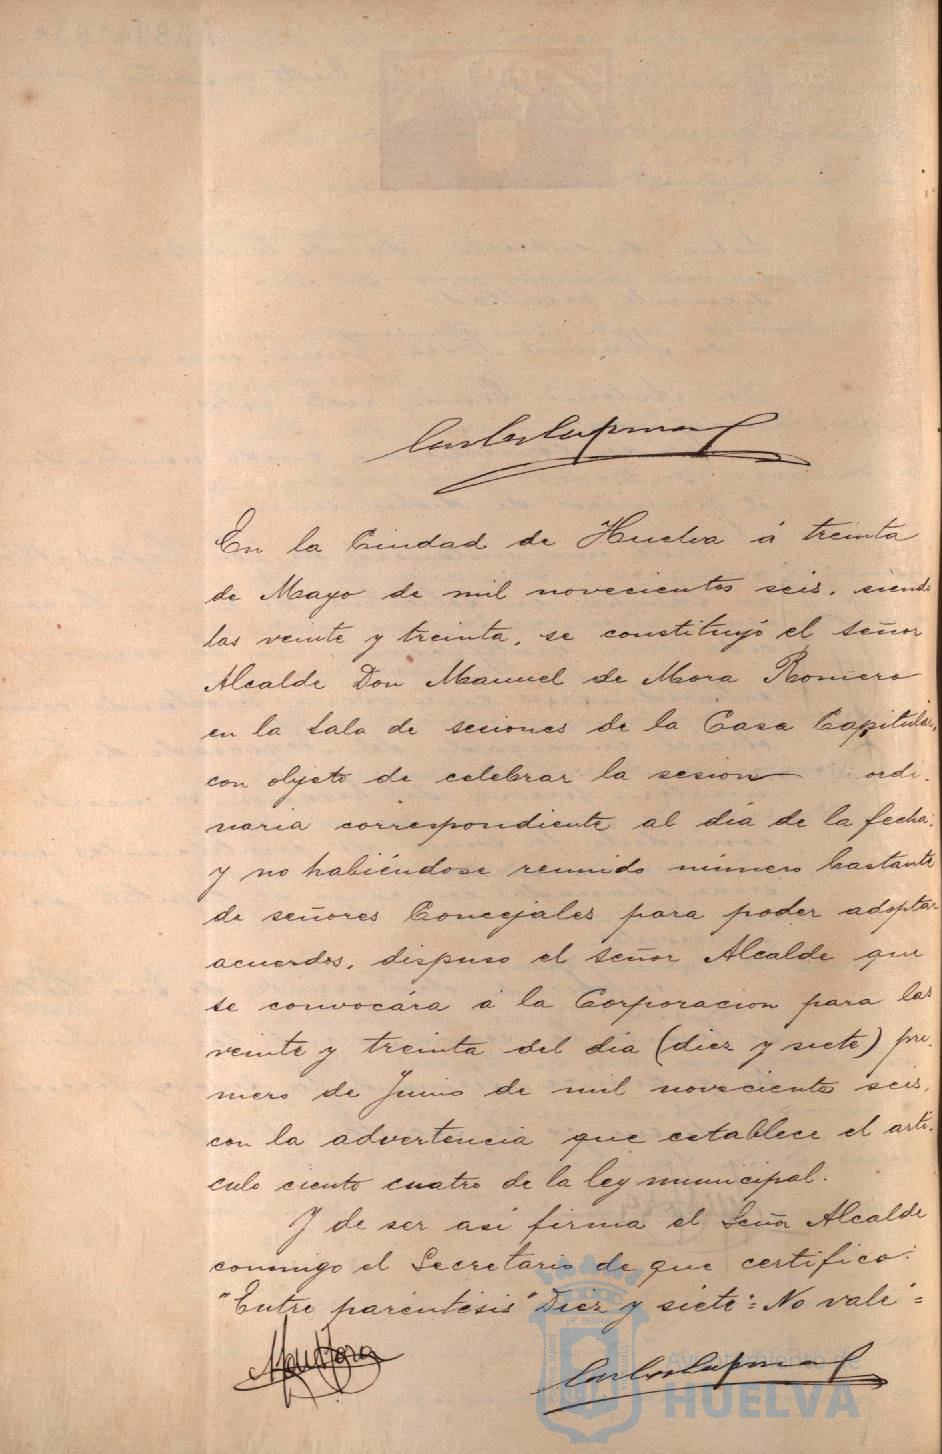 En la Ciudad de Huelva á treinta
de Mayo de mil novecientos seis, siendo
las veinte y treinta, se constituyó el señor
Alcalde Don Manuel de Mora Romero
en la Sala de sesiones de la Casa Capitular,
con objeto de celebrar la sesion ordi-
naria correspondiente al dia de la fecha;
y no habiéndose reunido número bastante
de señores Concejales para poder adoptar
acuerdos, dispuso el señor Alcalde que
se convocára á la Corporacion para las
veinte y treinta del dia (diez y siete) pri-
mero de Junio de mil novecientos seis,
con la advertencia que establece el arti-
culo ciento cuatro de la ley municipal.
Y de ser asi firma el Señor Alcalde
conmigo el Secretario de que certifico:
"Entre paréntesis" Diez y siete = No vale =
Man Mora
Ayuntamiento de
HUELVA